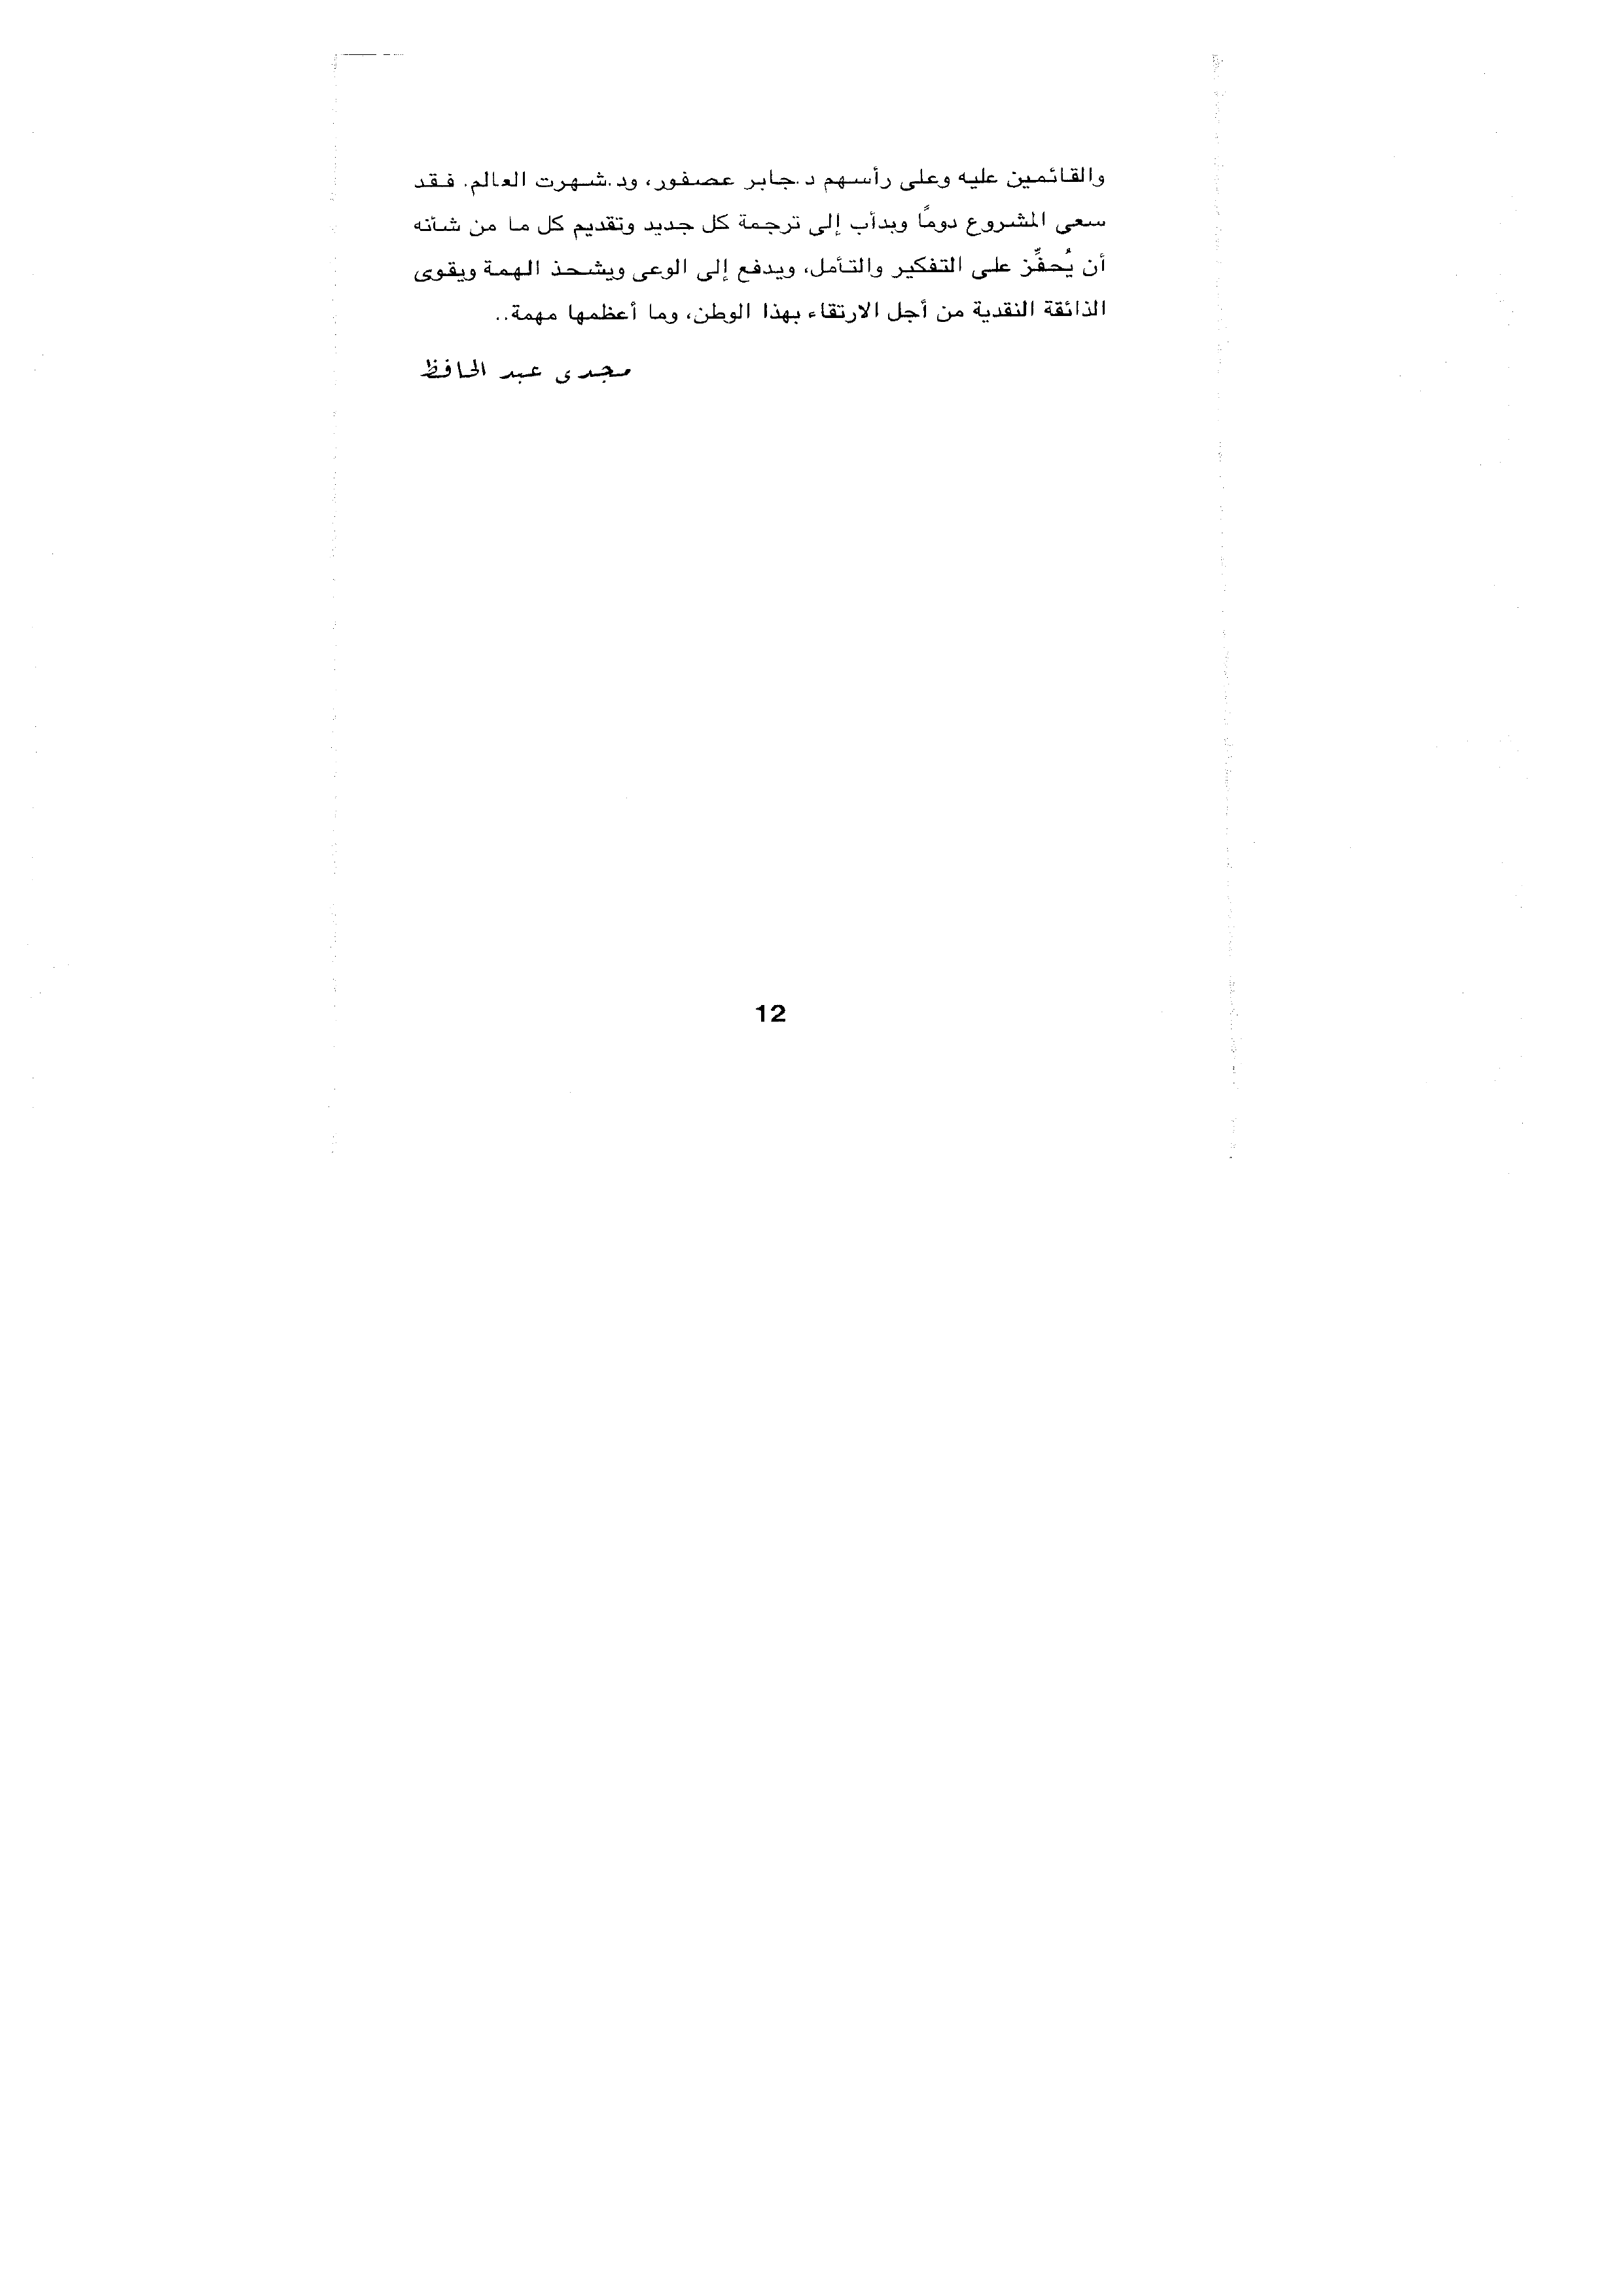 والقائمين عليه وعلى رأسهم د.جابر عصفور، ود.شهرت العالم. فقد
سعى المشروع دومًا وبدأب إلى ترجمة كل جديد وتقديم كل ما من شأنه
أن يُحفِّز على التفكير والتأمل، ويدفع إلى الوعى ويشحذ الهمة ويقوى
الذائقة النقدية من أجل الارتقاء بهذا الوطن، وما أعظمها مهمة..
مجدى عبد الحافظ
12